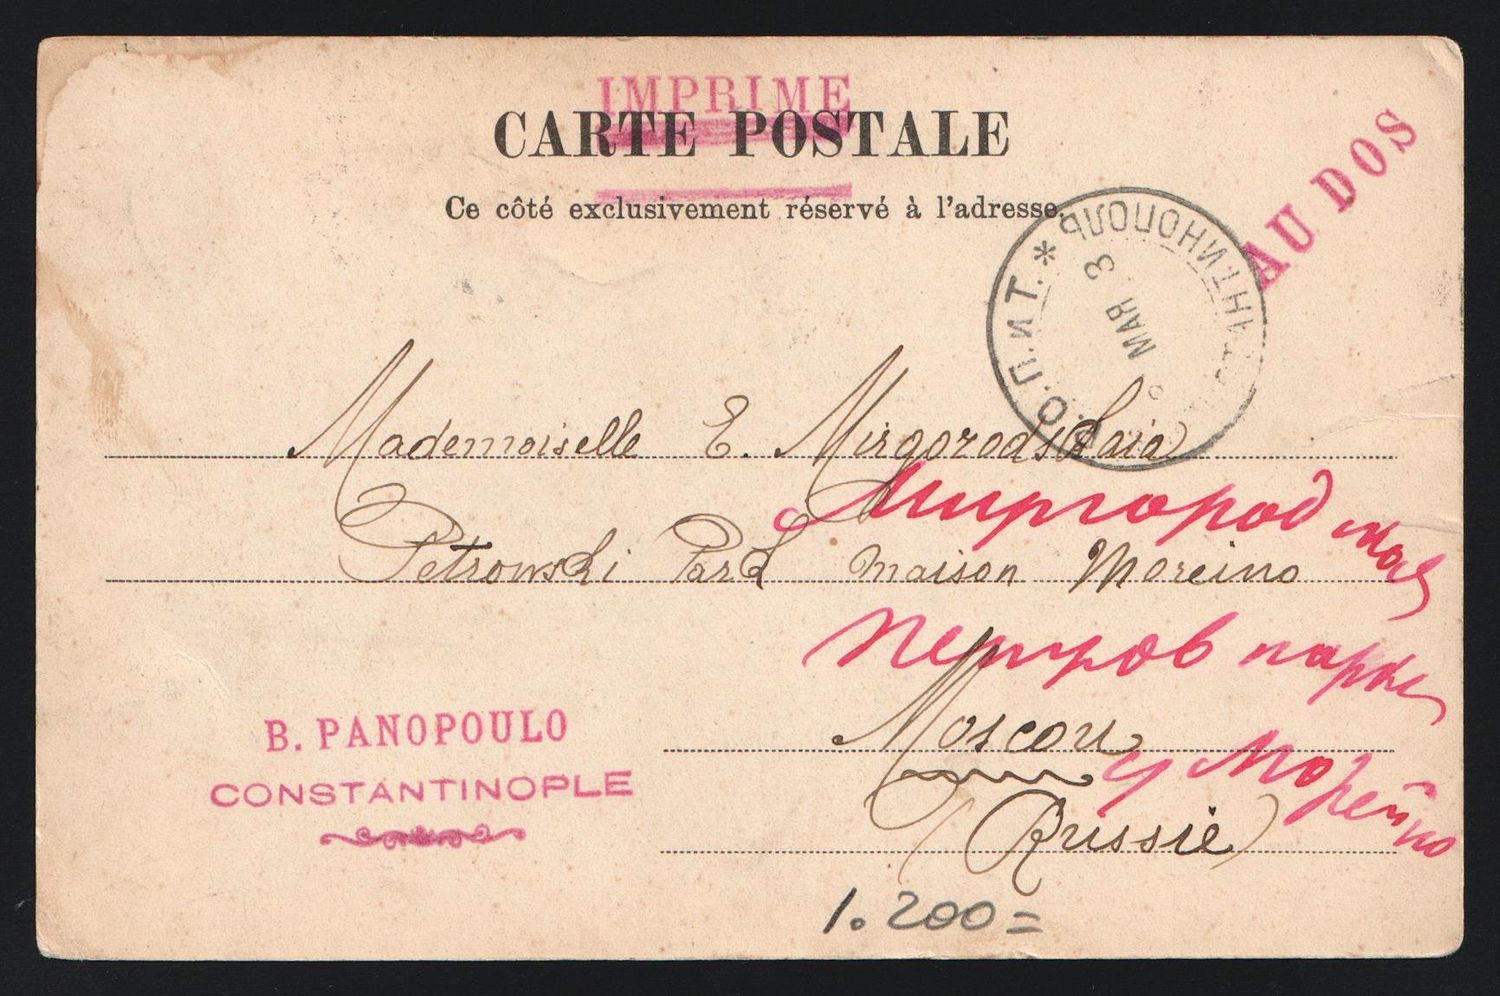 IMPRIME
CARTE POSTALE
AU DOS
Ce côté exclusivement réservé à l'adresse.
Р.О.П.иТ. *
МАЯ 3
Mademoiselle E. Mirgorodskaia
Миргородской
Petrowski Park maison Moreino
Петров парке
B. PANOPOULO
Moscou
CONSTANTINOPLE
у Морейно
(Russie)
1.200=